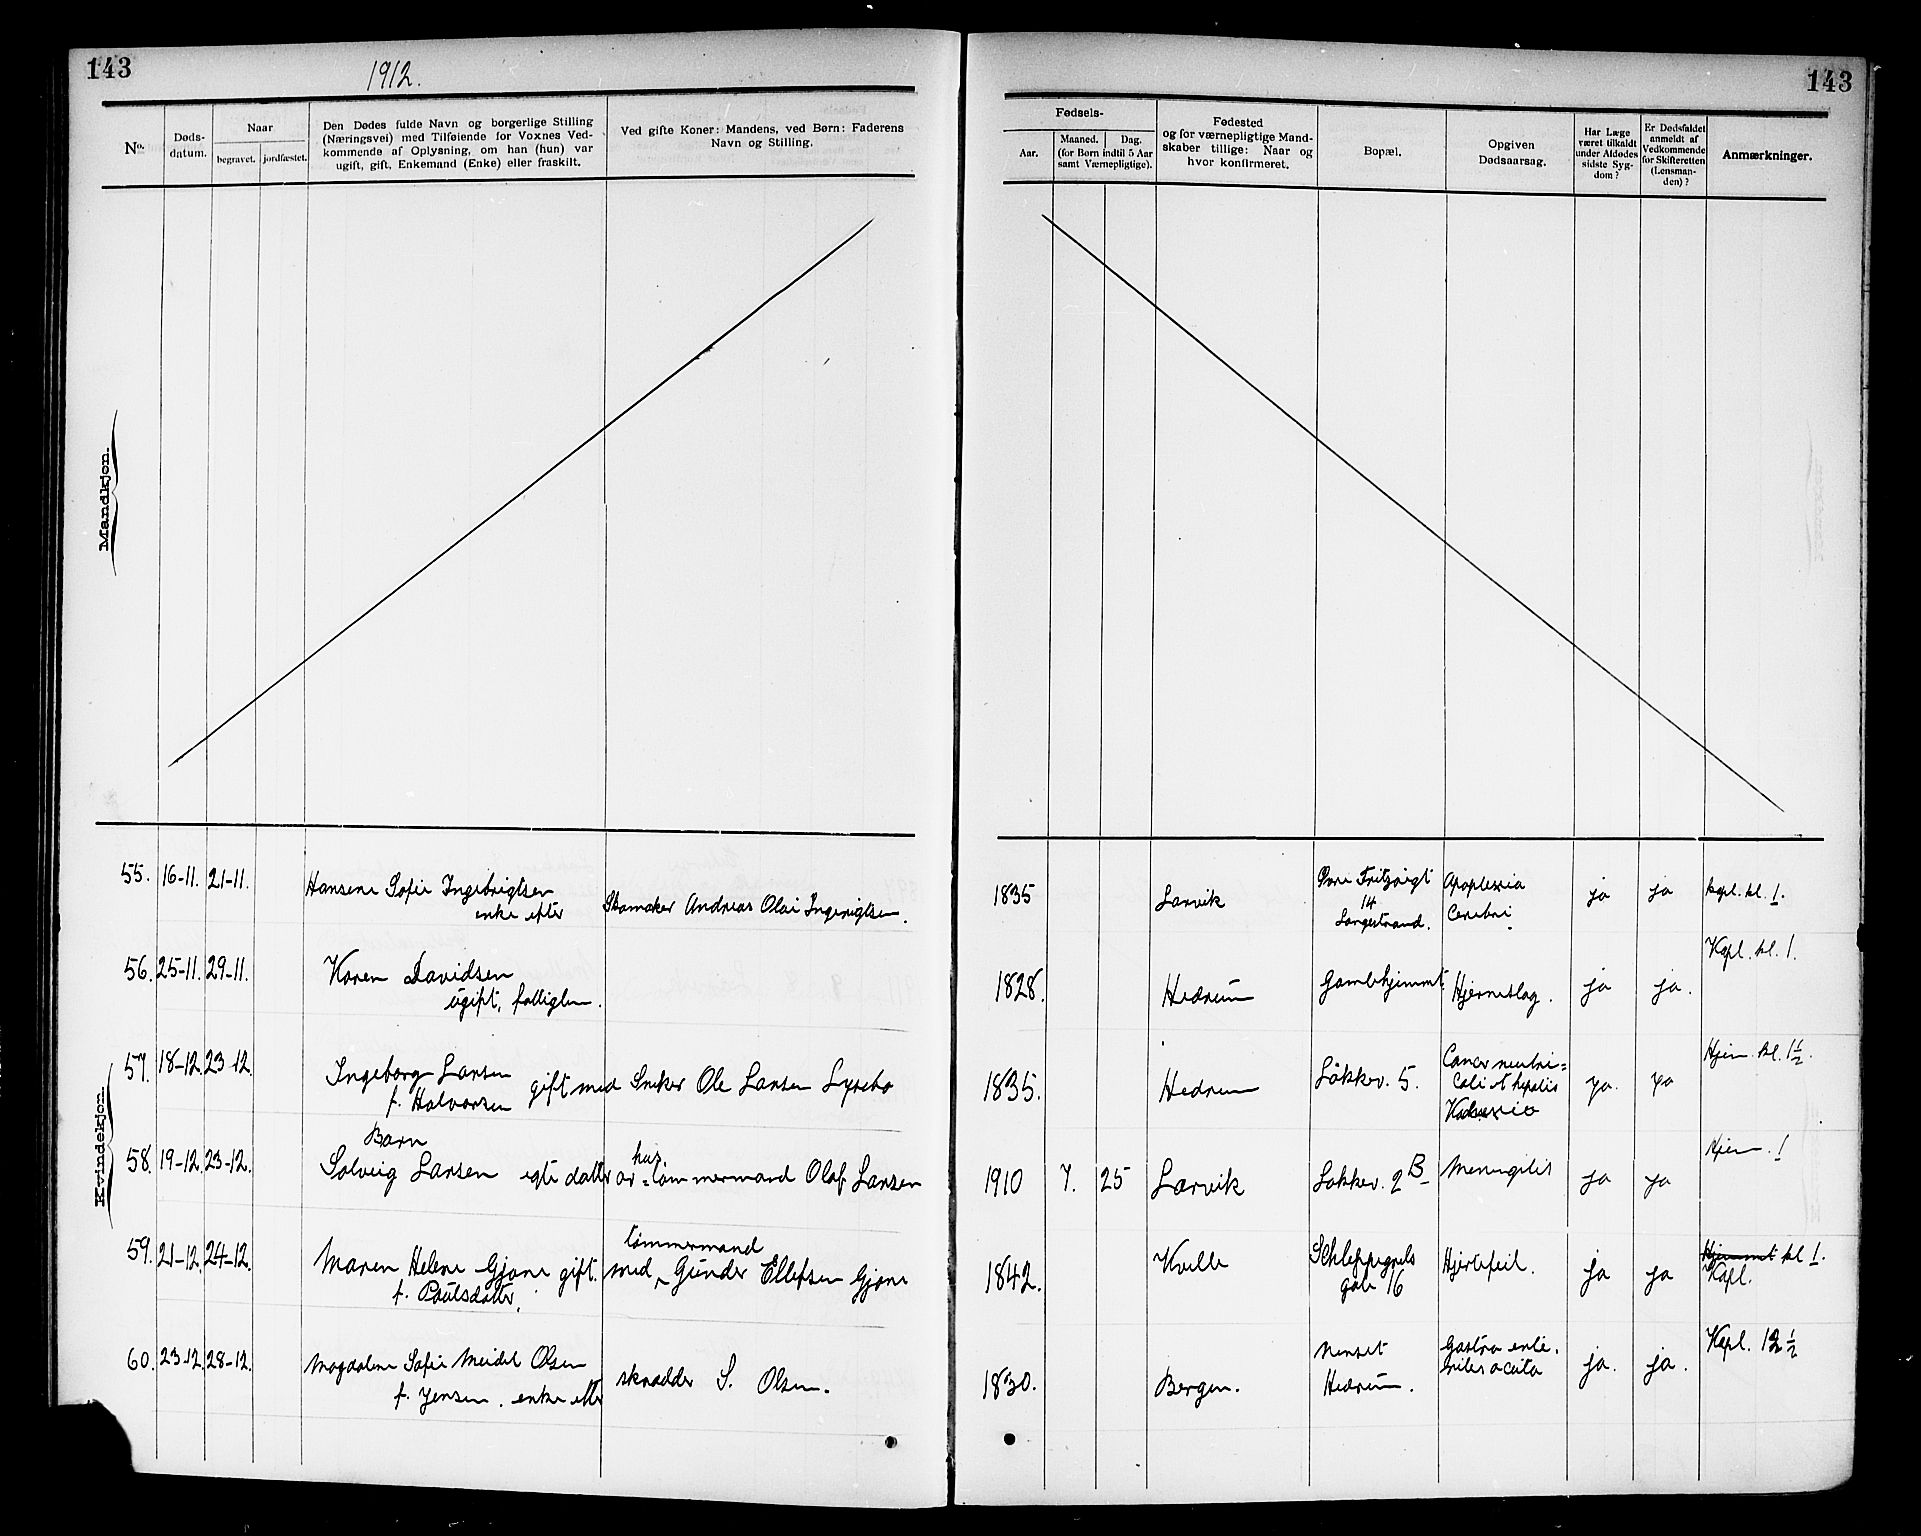 143
1912.
143
No.
Døds-
datum.
Naar
begravet. jordfæstet.
Den Dødes fulde Navn og borgerlige Stilling
(Næringsvei) med Tilføiende for Voxnes Ved-
kommende af Oplysning, om han (hun) var
ugift, gift, Enkemand (Enke) eller fraskilt.
Ved gifte Koner: Mandens, ved Børn: Faderens
Navn og Stilling.
Fødsels-
Aar.
Maaned. Dag.
(for Børn indtil 5 Aar
samt Værnepligtige).
Fødested
og for værnepligtige Mand-
skaber tillige: Naar og
hvor konfirmeret.
Bopæl.
Opgiven
Dødsaarsag.
Har Læge
været tilkaldt
under Afdødes
sidste Syg-
dom?
Er Dødsfaldet
anmeldt af
Vedkommende
for Skifteretten
(Lensman-
den)?
Anmærkninger.
Mandkjøn.
Kvindekjøn.
55. 16-11. 21-11. Hansene Sofie Ingebrigtsen
enke efter Skomaker Andreas Olai Ingerigtsen.
1835 Larvik Øvre Fritzøigt
14
Langestrand. Apoplexia
Cerebri. ja ja kapl. kl. 1.
56. 25-11. 29-11. Karen Davidsen
ugift, fattiglem.
1828. Hedrum Gamlehjemmet. Hjerneslag. ja ja. Kapl. kl. 1.
57. 18-12. 23-12. Ingeborg Larsen
f. Halvorsen gift med Snekker Ole Larsen Lysebo
1835. Hedrum Løkkev. 5. Cancer ventri=
culi et hepatis
ja. ja Hjem. kl. 1 1/2.
58. 19-12. 23-12. Barn
Solveig Larsen egte datter av hus
=tømmermand Olaf Larsen
1910 7. 25 Larvik Løkkev. 2 B Meningitis ja ja Hjem. 1
59. 21-12. 24-12. Maren Helene Gjone gift.
f. Paulsdatter. med tømmermand
Gunder Ellefsen Gjone
1842. Kvelle Schleppegrels
gate 16 Hjertefeil. ja ja Hjemmet kl 1.
Kapl.
60. 23-12. 28-12. Magdalene Sofie Meidel Olsen
f. Jensen. enke efter skrædder S. Olsen.
1830. Bergen. Nanset
Hedrum. Gastro ente-
rites acuta ja. ja. Kapl. 12 1/2